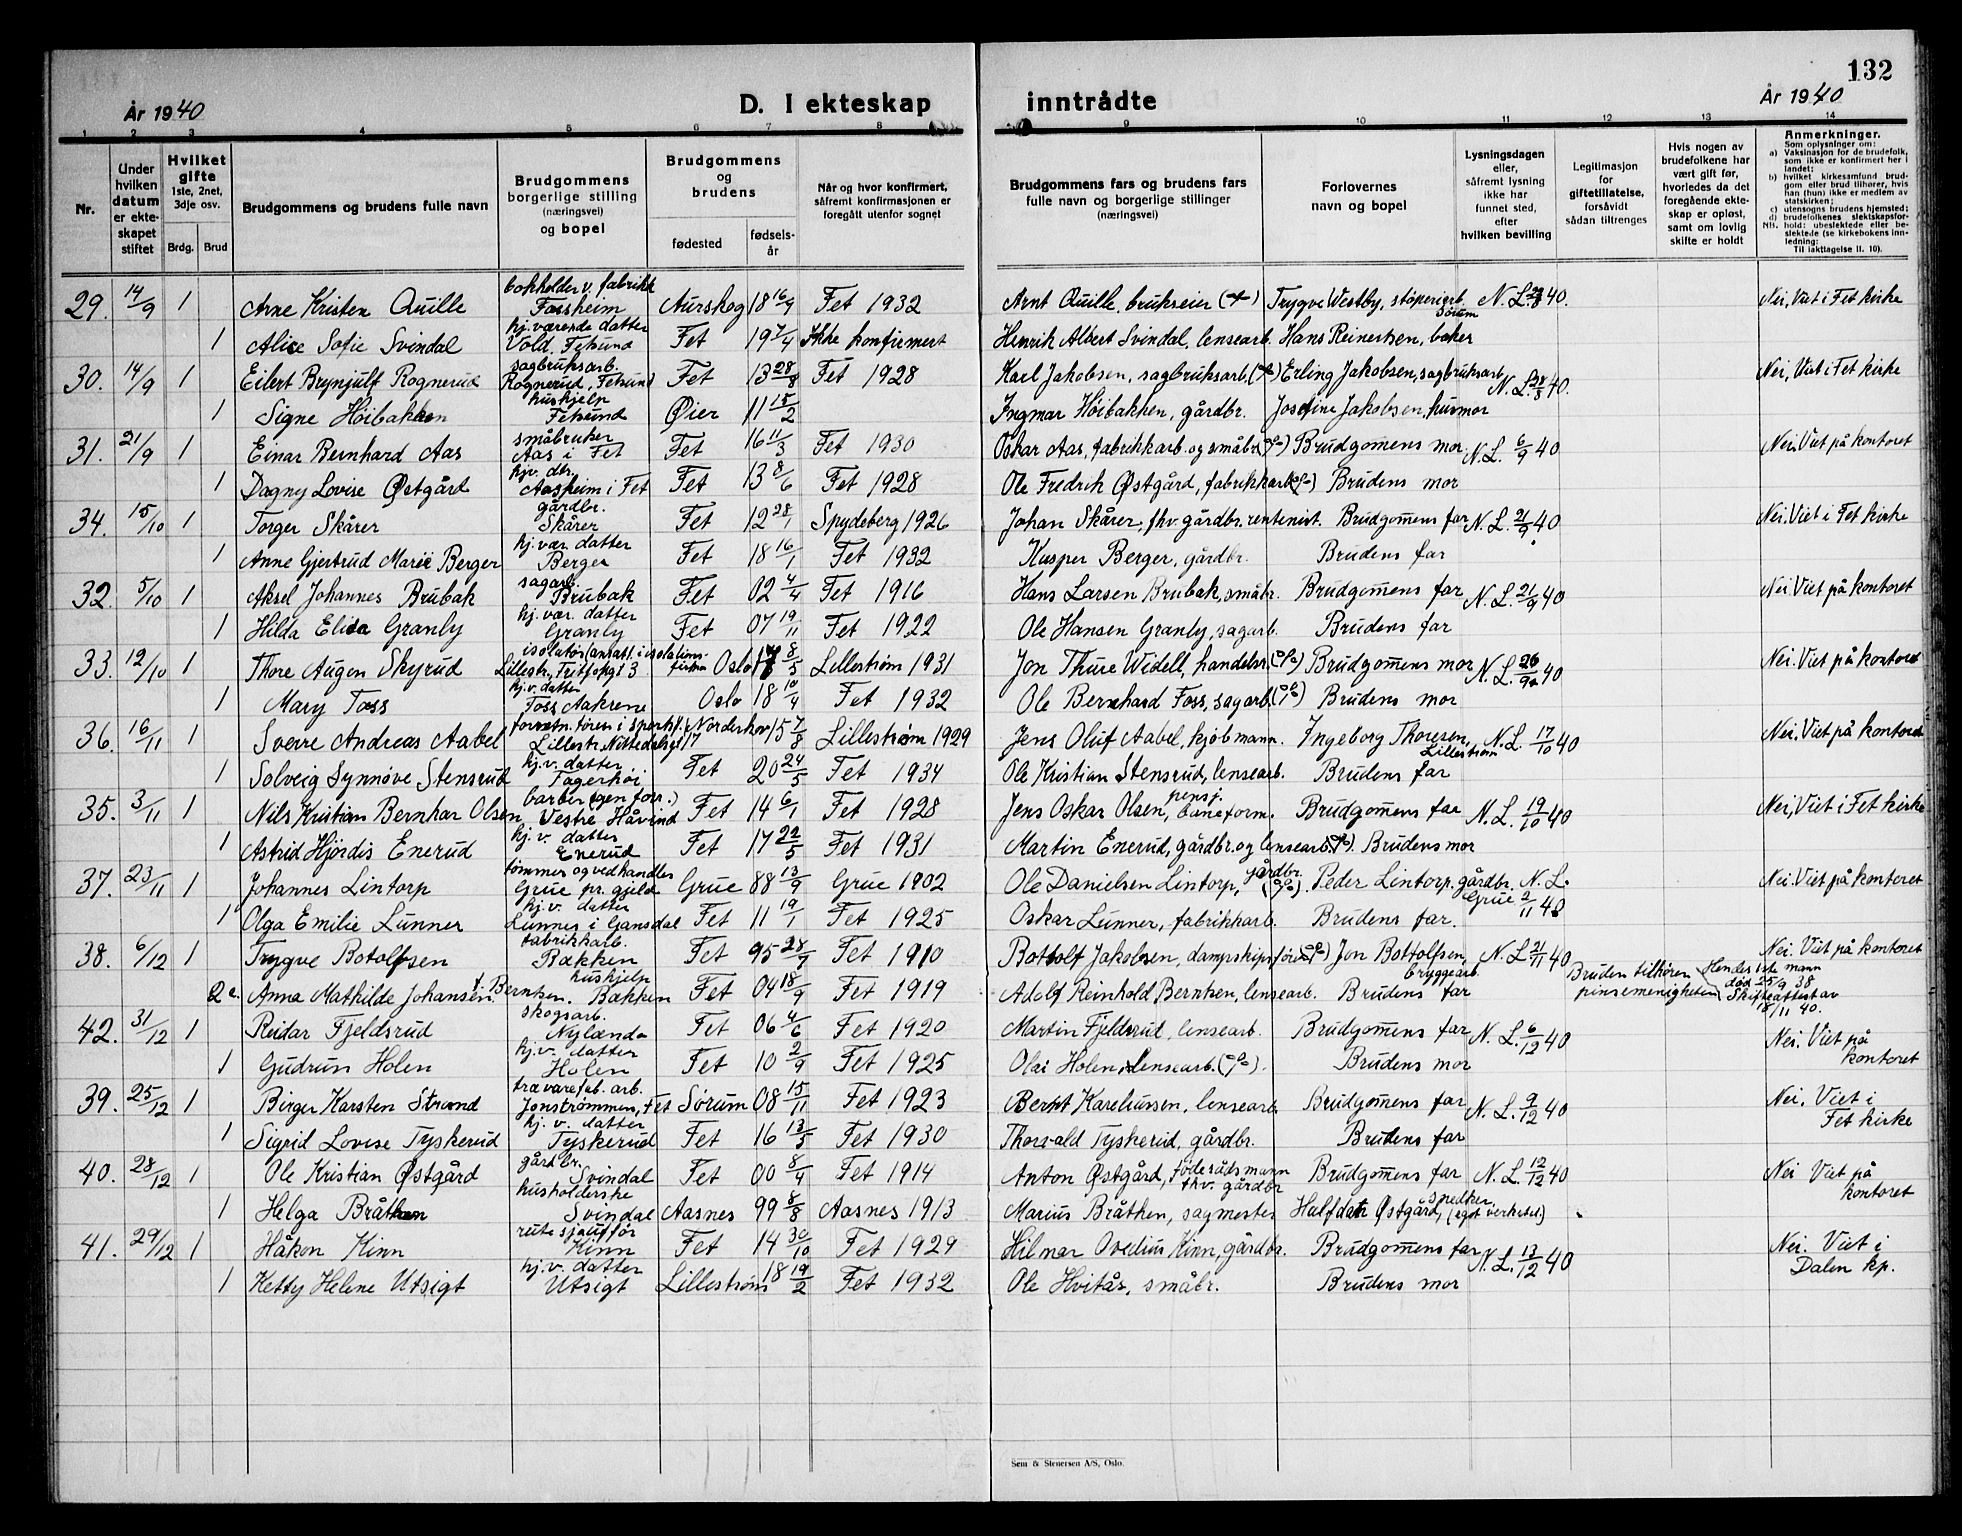 132
År 1940
D. I ekteskap inntrådte
År 1940
1 2 3 4 5 6 7 8 9 10 11 12 13 14
Nr.
Under hvilken datum er ekteskapet stiftet
Hvilket gifte 1ste, 2net, 3dje osv.
Brdg. Brud
Brudgommens og brudens fulle navn
Brudgommens borgerlige stilling (næringsvei) og bopel
Brudgommens og brudens
fødested
fødselsår
Når og hvor konfirmert, såfremt konfirmasjonen er foregått utenfor sognet
Brudgommens fars og brudens fars fulle navn og borgerlige stillinger (næringsvei)
Forlovernes navn og bopel
Lysningsdagen eller, såfremt lysning ikke har funnet sted, efter hvilken bevilling
Legitimasjon for giftetillatelse, forsåvidt sådan tiltrenges
Hvis nogen av brudefolkene har vært gift før, hvorledes da det foregående ekteskap er opløst, samt om lovlig skifte er holdt
Anmerkninger.
Som oplysninger om:
a) Vaksinasjon for de brudefolk, som ikke er konfirmert her i landet;
b) hvilket kirkesamfund brudgom eller brud tilhører, hvis han (hun) ikke er medlem av statskirken;
c) utensogns brudens hjemsted;
d) brudefolkenes slektskapsforhold: ubeslektede eller beslektede (se kirkebokens innledning:
NB. Til iakttagelse II. 10).
29. 14/9 1 Arne Kristen Quille bokholder v. fabrikk Fossheim Aurskog 18 16/4 Fet 1932 Arnt Quille, brukseier Trygve Westby, støperiarb. Sørum N. L. 40. Nei, Viet i Fet kirke
1 Alice Sofie Svindal hj. værende datter Vold, Fetsund Fet 19 7/4 Ikke konfirmert Henrik Albert Svindal, lensearb. Hans Reinertsen, baker
30. 14/9 1 Eilert Brynjulf Rognerud sagbruksarb. Rognerud, Fetsund Fet 13 28/8 Fet 1928 Karl Jakobsen, sagbruksarb. Erling Jakobsen, sagbruksarb N. L. 28/8 40. Nei, Viet i Fet kirke
1 Signe Høibakken hushjelp Fetsund Øier 11 15/2 Ingmar Høibakken, gårdbr. Josefine Jakobsen, husmor
31. 21/9 1 Einar Bernhard Aas småbruker Aas i Fet Fet 16 11/3 Fet 1930 Oskar Aas, fabrikkarb. og småbr. Brudgomens mor N. L. 6/9 40 Nei. Viet på kontoret
1 Dagny Lovise Østgård hjv. dtr. Aasheim i Fet Fet 13 8/6 Fet 1928 Ole Fredrik Østgård, fabrikkarb. Brudens mor
34. 15/10 1 Torger Skårer gårdbr. Skårer Fet 12 28/1 Spydeberg 1926 Johan Skårer, fhv. gårdbr. rentenist. Brudgomens far N. L. 21/9 40 Nei. Viet i Fet kirke
1 Anne Gjertrud Marie Berger hj. vær. datter Berger Fet 18 16/1 Fet 1932 Kasper Berger, gårdbr. Brudens far
32. 5/10 1 Aksel Johannes Brubak sagarb. Brubak Fet 02 4/4 Fet 1916 Hans Larsen Brubak, småbr. Brudgomens far N. L. 21/9 40 Nei. Viet på kontoret
1 Hilda Elida Granly hj. vær. datter Granly Fet 07 19/11 Fet 1922 Ole Hansen Granly, sagarb. Brudens far
33. 12/10 1 Thore Augen Skyrud isolatør (ansatt i isolationsfirma Lillestr., Fritjofsgt 3 Oslo 8/5 Lillestrøm 1931 Jon Thure Widell, handelsr. Brudgomens mor N. L. 26/9 40 Nei. Viet på kontoret
1 Mary Foss hj. v. datter Foss Aakrene Oslo 18 10/4 Fet 1932 Ole Bernhard Foss, sagarb. Brudens mor
36. 16/11 1 Sverre Andreas Aabel Lillestr. Nittedalsgt 17 Norderhov 15 7/8 Lillestrøm 1929 Jens Oluf Aabel, kjøbmann. Ingeborg Thoresen, Lillestrøm N. L. 17/10 40 Nei, Viet på kontoret
1 Solveig Synnøve Stensrud hj. v. datter Fagerhøi Fet 20 24/5 Fet 1934 Ole Kristian Stensrud, lensearb. Brudens far
35. 3/11 1 Nils Kristian Bernhar Olsen barber (egen forr.) Vestre Håvind Fet 14 6/1 Fet 1928 Jens Oskar Olsen, pensj. baneform. Brudgomens far N. L. 19/10 40 Nei, Viet i Fet kirke
1 Astrid Hjørdis Enerud hj. v. datter Enerud Fet 17 22/5 Fet 1931 Martin Enerud, gårdbr. og lensearb. Brudens mor
37. 23/11 1 Johannes Lintorp tømmer og vedhandler Grue pr. gjeld Grue 88 13/9 Grue 1902 Ole Danielsen Lintorp, gårdbr. Peder Lintorp. gårdbr. Grue N. L. 2/11 40 Nei. Viet på kontoret
1 Olga Emilie Lunner hj. v. datter Lunner i Gansdal Fet 11 19/1 Fet 1925 Oskar Lunner, fabrikkarb. Brudens far.
38. 6/12 1 Trygve Botolfsen fabrikkarb. Bakken Fet 95 28/7 Fet 1910 Bottolf Jakobsen, dampskipsfører Jon Bottolfsen, bryggearb N. L. 21/11 40 Nei. Viet på kontoret
2 Anna Mathilde Johansen f. Berntsen. hushjelp Bakken Fet 04 18/9 Fet 1919 Adolf Reinhold Berntsen, lensearb. Brudens far Bruden tilhører pinsemenigheten Hendes 1ste mann død 25/9 38 Skifteattest av 18/11 40.
42. 31/12 1 Reidar Fjeldsrud skogsarb. Nylænde Fet 06 4/6 Fet 1920 Martin Fjeldsrud, lensearb. Brudgomens far N. L. 6/12 40 Nei. Viet på kontoret
1 Gudrun Holen hj. v. datter Holen Fet 10 2/9 Fet 1925 Olai Holen, lensearb. Brudens mor
39. 25/12 1 Birger Karsten Strand trævarefab. arb. Jonstrømmen, Fet Sørum 08 15/11 Fet 1923 Bernt Kareliussen, lensearb. Brudgomens far N. L. 9/12 40 Nei. Viet i Fet kirke
1 Sigrid Lovise Tyskerud hj. v. datter Tyskerud Fet 16 13/5 Fet 1930 Thorvald Tyskerud, gårdbr. Brudens far
40. 28/12 1 Ole Kristian Østgård gårdbr. Svindal Fet 00 8/4 Fet 1914 Anton Østgård, føderådsmann fhv. gårdbr Brudgomens far N. L. 12/12 40 Nei Viet på kontoret
1 Helga Bråthen husholderske Svindal Aasnes 99 8/8 Aasnes 1913 Marius Bråthen, sagmester Halfdan Østgård, snedker (eget verksted)
41. 29/12 1 Håkon Kinn rutesjauffør Kinn Fet 14 30/10 Fet 1929 Hilmar Ovedius Kinn, gårdbr. Brudgomens far N. L. 13/12 40 Nei. Viet i Dalen kp.
1 Hetty Helene Utsigt hj. v. datter Utsigt Lillestrøm 18 19/2 Fet 1932 Ole Hvitås, småbr. Brudens mor
Sem & Stenersen A/S, Oslo.